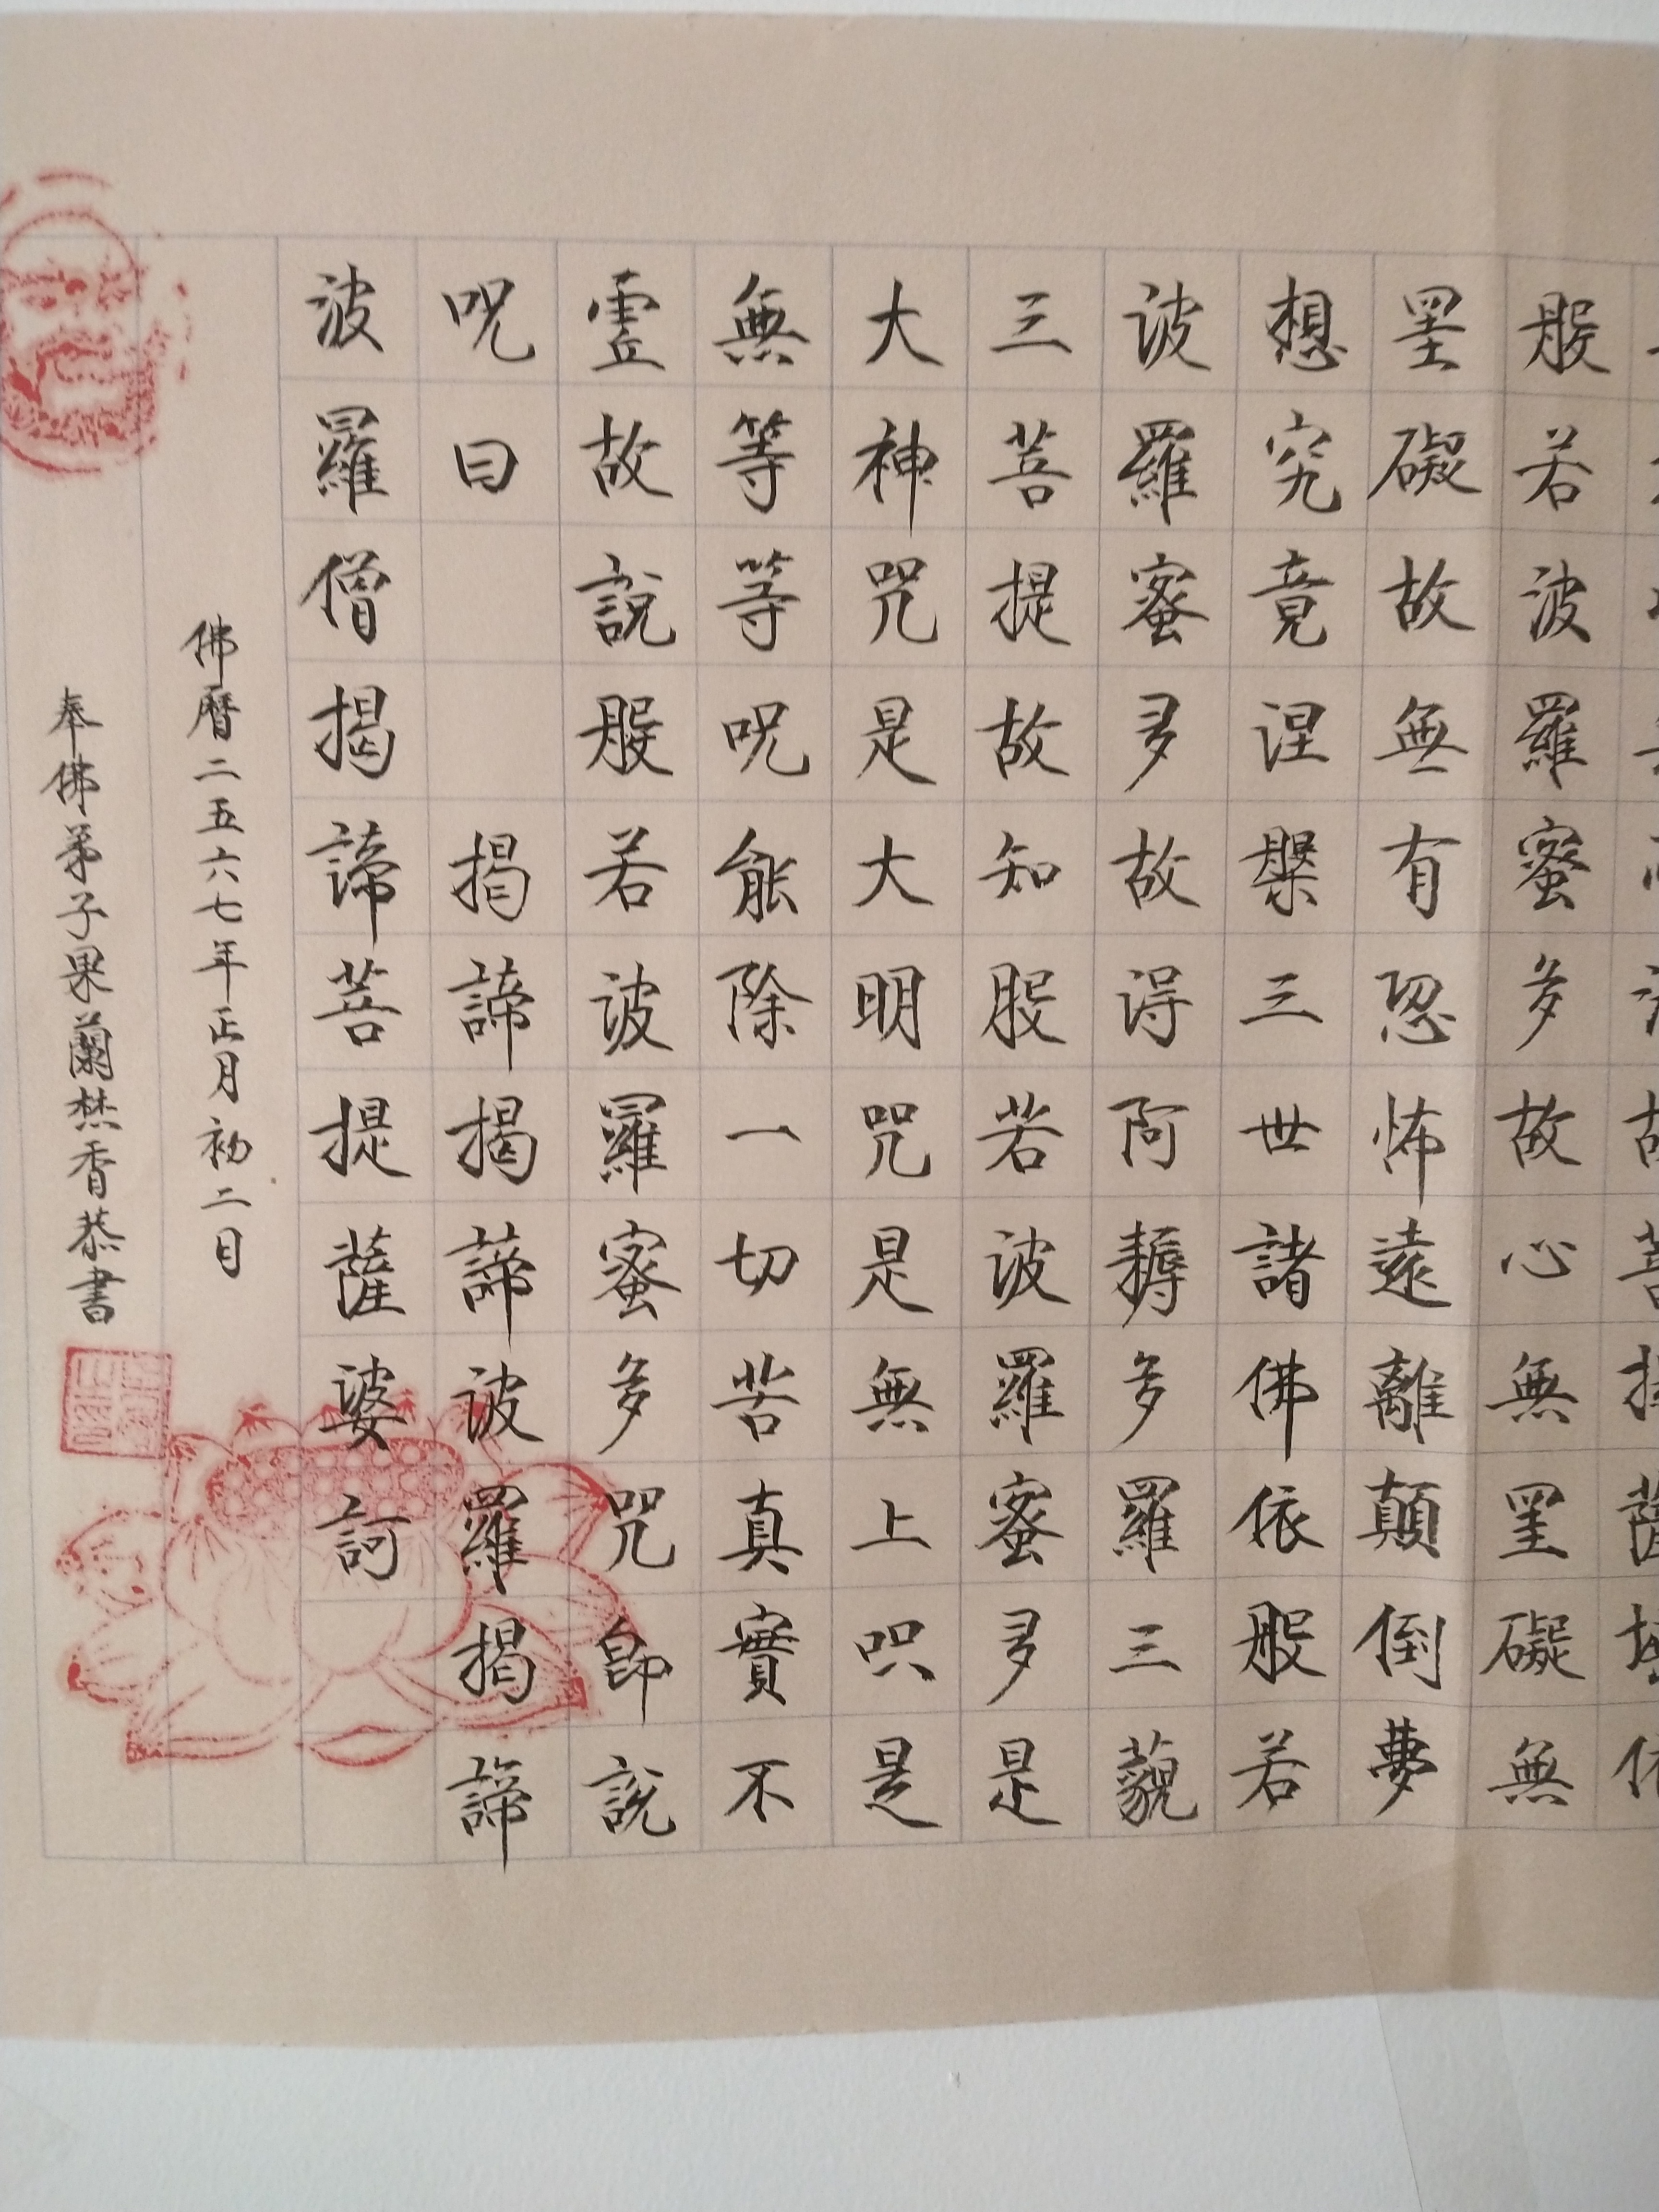 般若波羅蜜多故心無罣礙無
罣礙故無有恐怖遠離顛倒夢
想究竟涅槃三世諸佛依般若
波羅蜜多故得阿耨多羅三藐
三菩提故知般若波羅蜜多是
大神咒是大明咒是無上呪是
無等等呪能除一切苦真實不
虛故說般若波羅蜜多咒即說
呪曰　　揭諦揭諦波羅揭諦
波羅僧揭諦菩提薩婆訶
佛曆二五六七年正月初二日
奉佛弟子果蘭焚香恭書